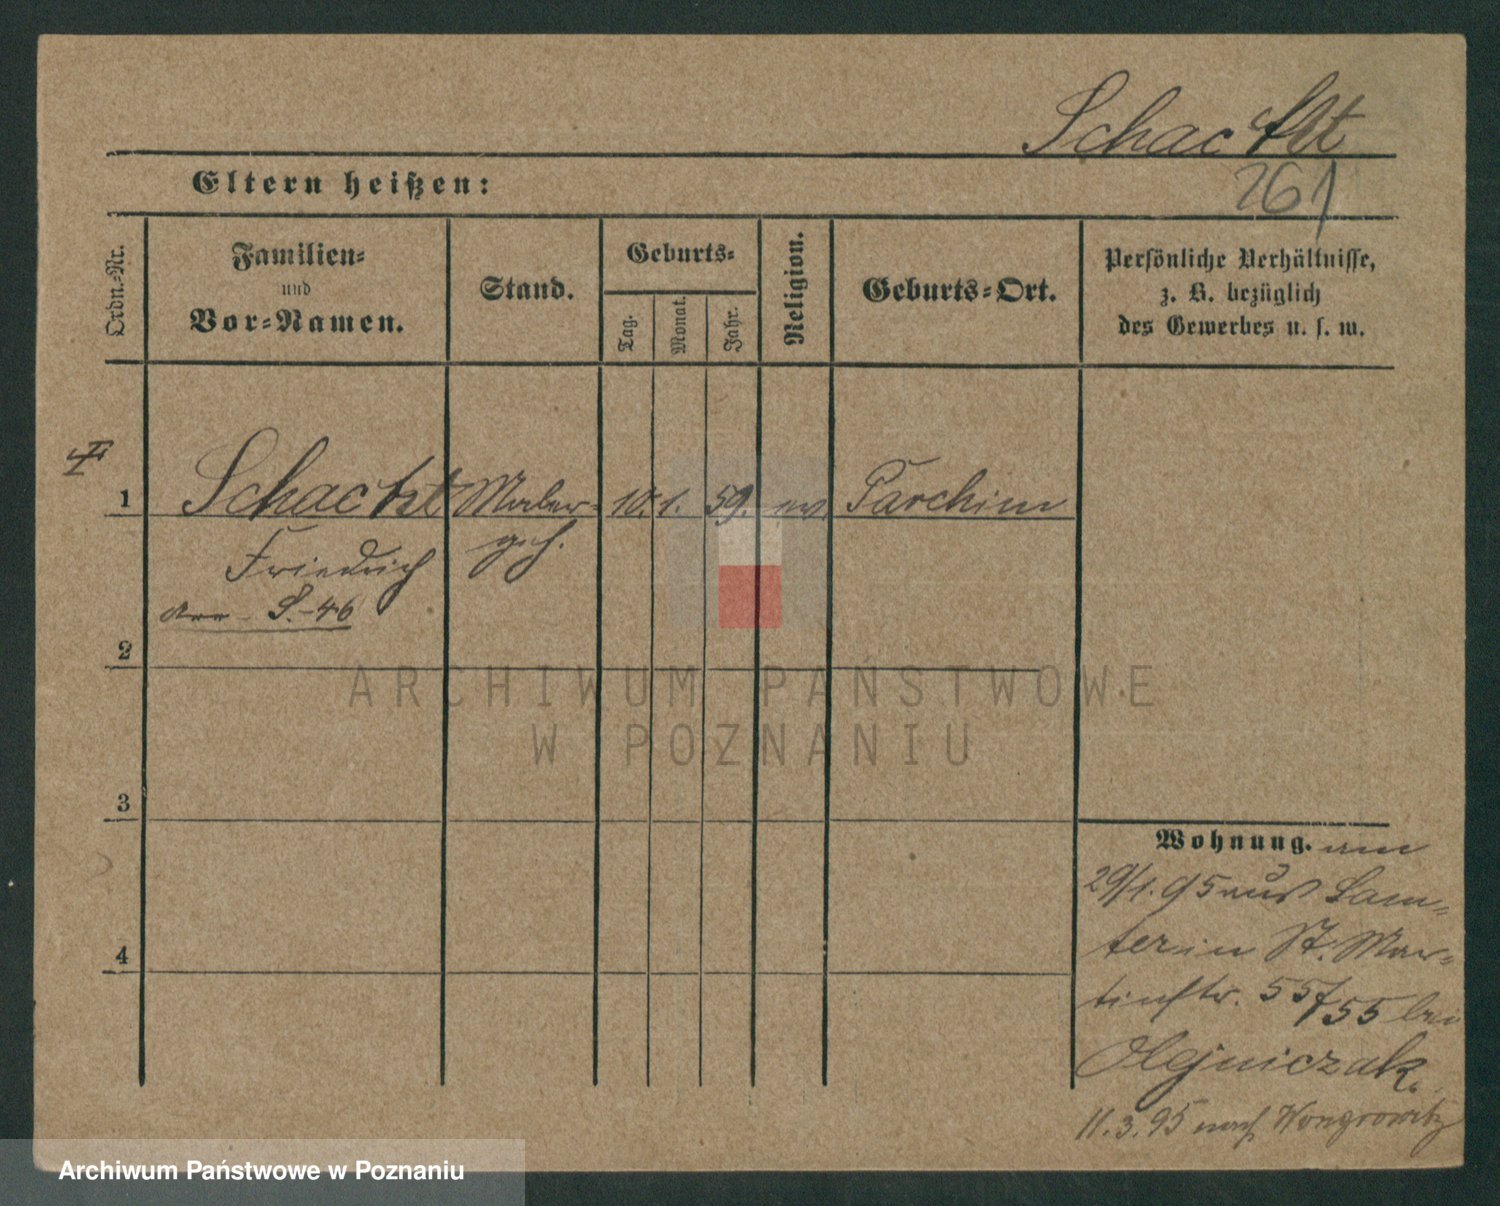 Schacht
261
Eltern heißen:
Ordn.-Nr.
Familien-
und
Vor-Namen.
Stand.
Geburts-
Tag.
Monat.
Jahr.
Religion.
Geburts-Ort.
Persönliche Verhältnisse,
z. B. bezüglich
des Gewerbes u. s. w.
1
Schacht Maler- 10. 1. 59. ev. Parchim
Friedrich geh.
S.-46
2
3
4
Wohnung. am
29/1.95 aus Sam-
ter in St. Mar-
tinstr. 55 bei
Olejniczak.
11.3.95 nach Wongrowitz
ARCHIWUM PAŃSTWOWE
W POZNANIU
Archiwum Państwowe w Poznaniu